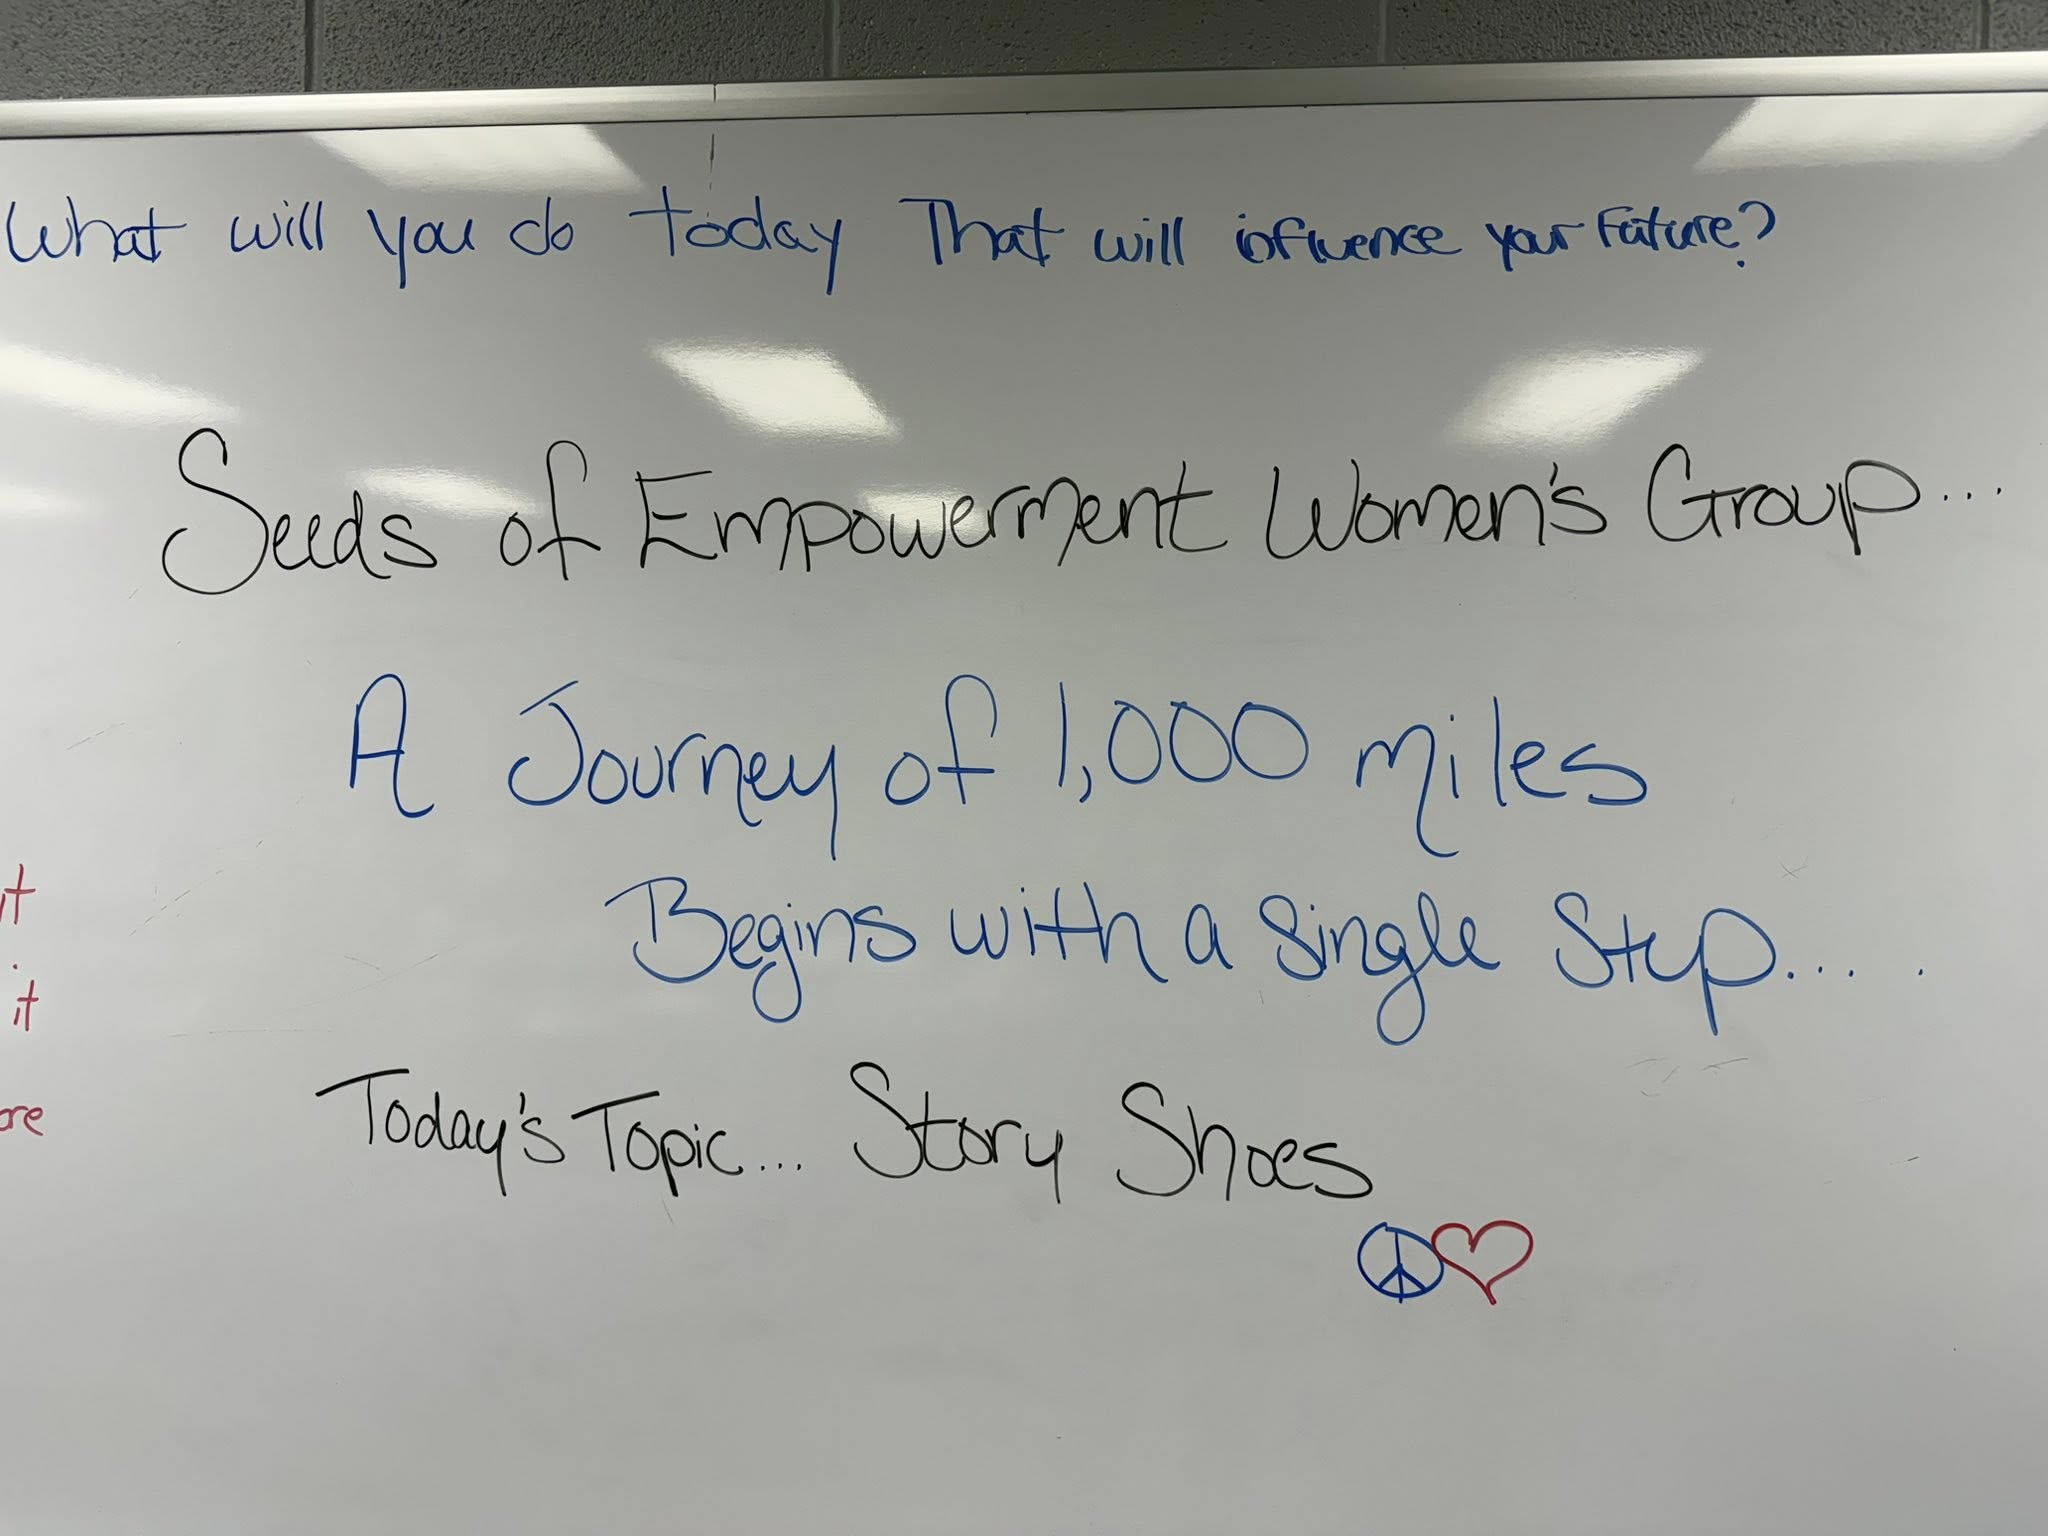 What will you do today That will influence your Future?
Seeds of Empowerment Women's Group...
A Journey of 1,000 miles
Begins with a Single Step.... .
it
it
Today's Topic... Story Shoes